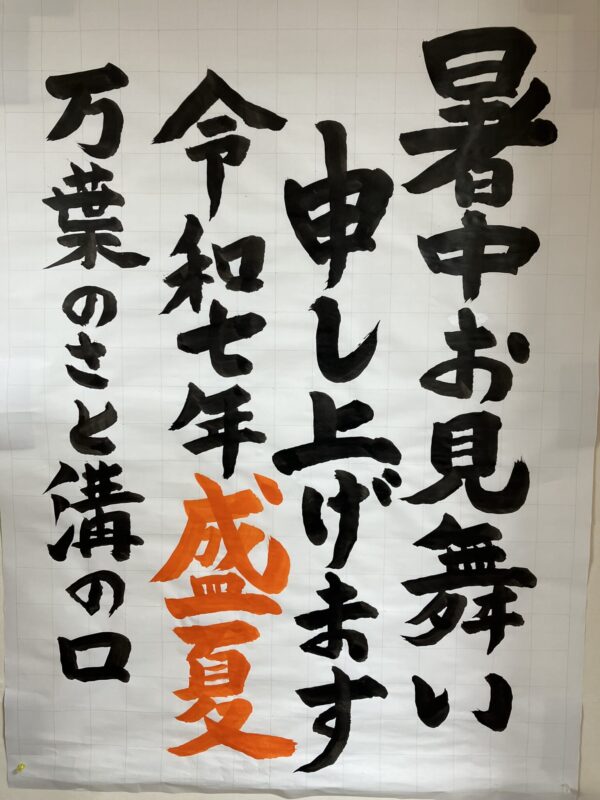 暑中お見舞い
申し上げます
令和七年盛夏
万葉のさと溝の口